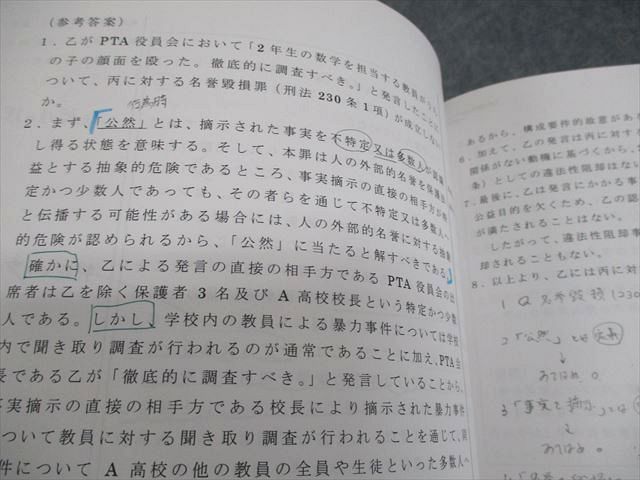 （参考答案）
1．乙がPTA役員会において「2年生の数学を担当する教員がうち
の子の顔面を殴った。徹底的に調査すべき。」と発言したことに
ついて、丙に対する名誉毀損罪（刑法230条1項）が成立しない
か。
2．まず、「公然」とは、摘示された事実を不特定又は多数人が
し得る状態を意味する。そして、本罪は人の外部的名誉を保護法
益とする抽象的危険であるところ、事実摘示の直接の相手方が特
定かつ少数人であっても、その者らを通じて不特定又は多数人へ
と伝播する可能性がある場合には、人の外部的名誉に対する抽象
的危険が認められるから、「公然」に当たると解すべきである。
確かに、乙による発言の直接の相手方であるPTA役員会の出
席者は乙を除く保護者3名及びA高校校長という特定かつ少数
人である。しかし、学校内の教員による暴力事件については学校
内で聞き取り調査が行われるのが通常であることに加え、PTA会
長である乙が「徹底的に調査すべき。」と発言していることから、
事実摘示の直接の相手方である校長により摘示された暴力事件
ついて教員に対する聞き取り調査が行われることを通じて、
件についてA高校の他の教員の全員や生徒といった多数人へ
あるから、構成要件的故意がある
6．加えて、乙の発言は丙に対す
関係がない動機に基づくから、
条）としての違法性阻却はな
7．最後に、乙は発言にかかる事
公益目的を欠くため、乙の認
が満たされることはない。
したがって、違法性阻却事
却されることもない。
8．以上より、乙には丙に対
1 Q 名誉毀損（230
2 「公然」とは
↓
あてはめ。
3 「事実を摘示」とは
↓
あてはめ。